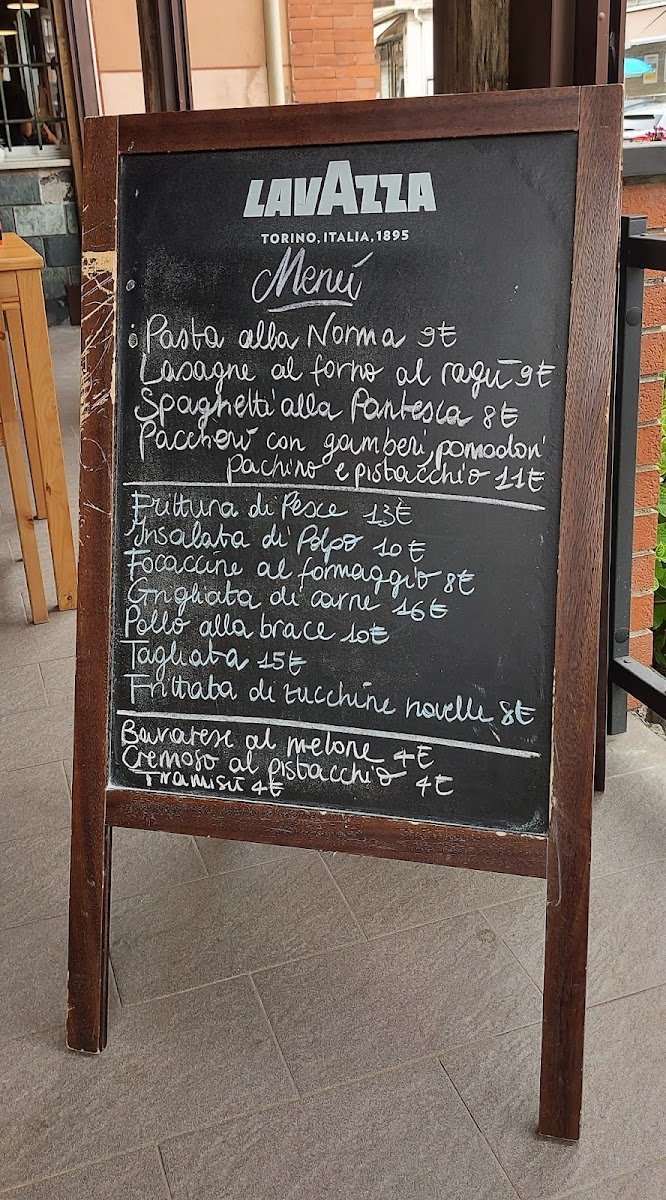 LAVAZZA
TORINO, ITALIA, 1895
Menú
Pasta alla Norma 9€
Lasagne al forno al ragù 9€
Spaghetti alla Pantesca 8€
Paccheri con gamberi, pomodori
pachino e pistacchio 11€
Frittura di Pesce 13€
Insalata di Polpo 10€
Focaccine al formaggio 8€
Grigliata di carne 16€
Pollo alla brace 10€
Tagliata 15€
Frittata di zucchine novelle 8€
Bavarese al melone 4€
Cremoso al pistacchio 4€
Tiramisù 4€